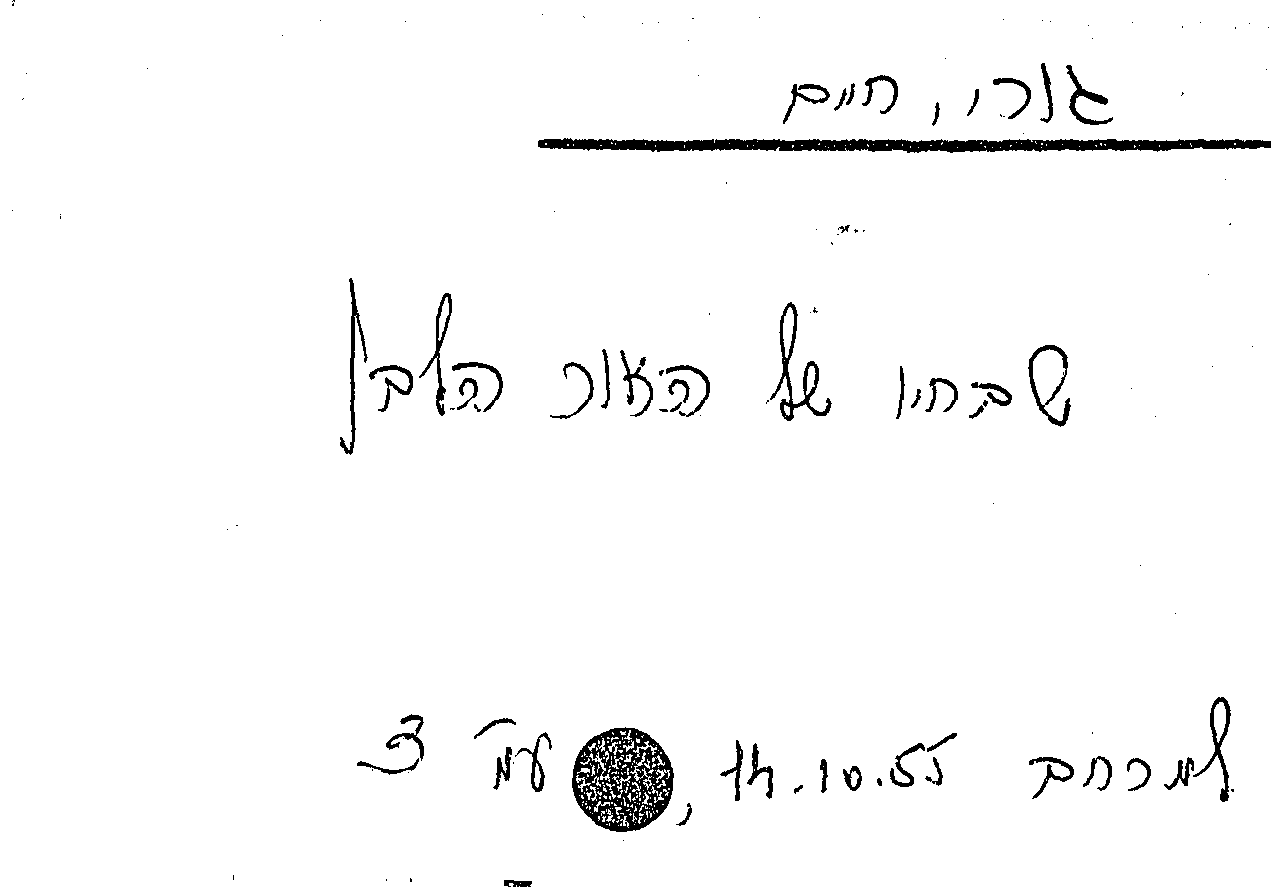 גורי, חיים
שבחיו של האור הלבן
למרחב 14.10.55, עמ' 3